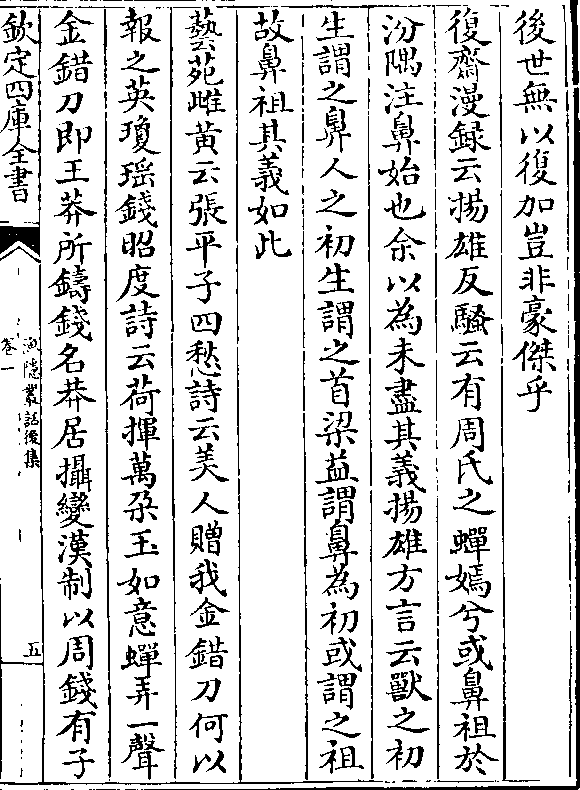 後世無以復加豈非豪傑乎
復齋漫録云揚雄反騷云有周氏之蟬嫣兮或鼻祖於
汾隅注鼻始也余以為未盡其義揚雄方言云獸之初
生謂之鼻人之初生謂之首梁益謂鼻為初或謂之祖
故鼻祖其義如此
藝苑雌黄云張平子四愁詩云美人贈我金錯刀何以
報之英瓊瑶錢昭度詩云荷揮萬朶玉如意蟬弄一聲
金錯刀即王莽所鑄錢名莽居攝變漢制以周錢有子
欽定四庫全書
漁隱叢話後集
卷一
五